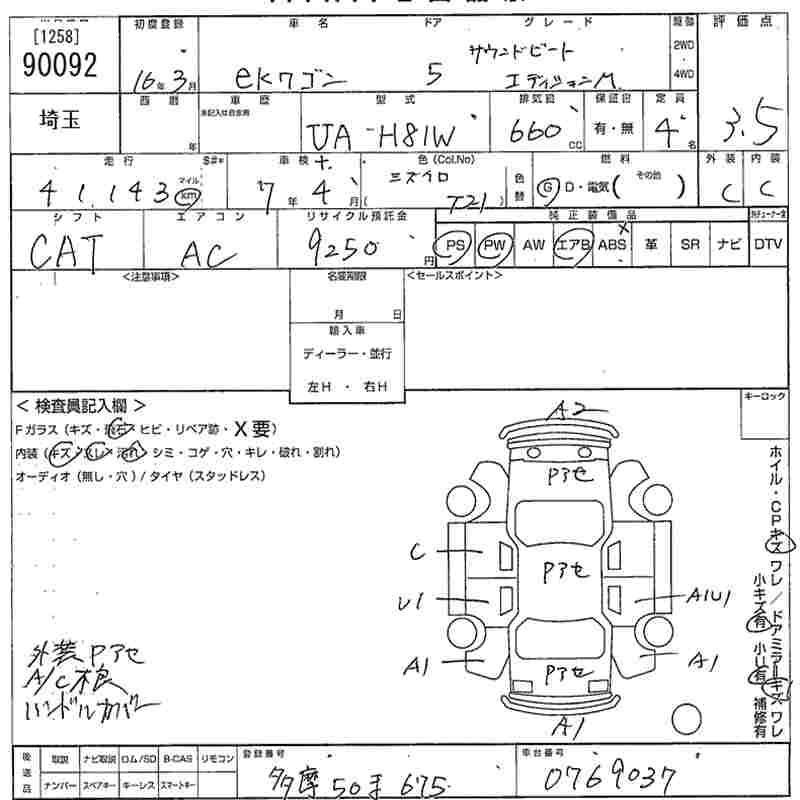 [1258]
90092
初度登録
16年3月
車名
ekワゴン
ドア
5
グレード
サウンドビート
エディションM
駆動
2WD
4WD
評価点
3.5
埼玉
西暦
年
車歴
未記入は自家用
型式
UA-H81W
排気量
660cc
保証書
有・無
定員
4名
走行
41,143
マイル
km
車検
7年4月
色(Col.No)
ミズイロ
T21
色替
燃料
G D・電気(その他)
外装
C
内装
C
シフト
CAT
エアコン
AC
リサイクル預託金
9250円
純正装備品
PS PW AW エアB ABS 革 SR ナビ DTV
<注意事項>
名変期限
月 日
輸入車
ディーラー・並行
左H・右H
<セールスポイント>
<検査員記入欄>
Fガラス(キズ・飛石・ヒビ・リペア跡・X要)
内装(キズ・スレ・汚れ・シミ・コゲ・穴・キレ・破れ・割れ)
オーディオ(無し・穴)/タイヤ(スタッドレス)
キーロック
A2
Pアセ
C
Pアセ
U1
A1U1
A1
A1
Pアセ
A1
ホイル・CPキズワレ/ドアミラーキズワレ
小キズ有 小U有 補修有
外装Pアセ
A/C不良
ハンドルカバー
後送品
取説 ナビ取説 ロム/SD B-CAS リモコン
ナンバー スペアキー キーレス スマートキー
登録番号
多摩 50 675
車台番号
0769037